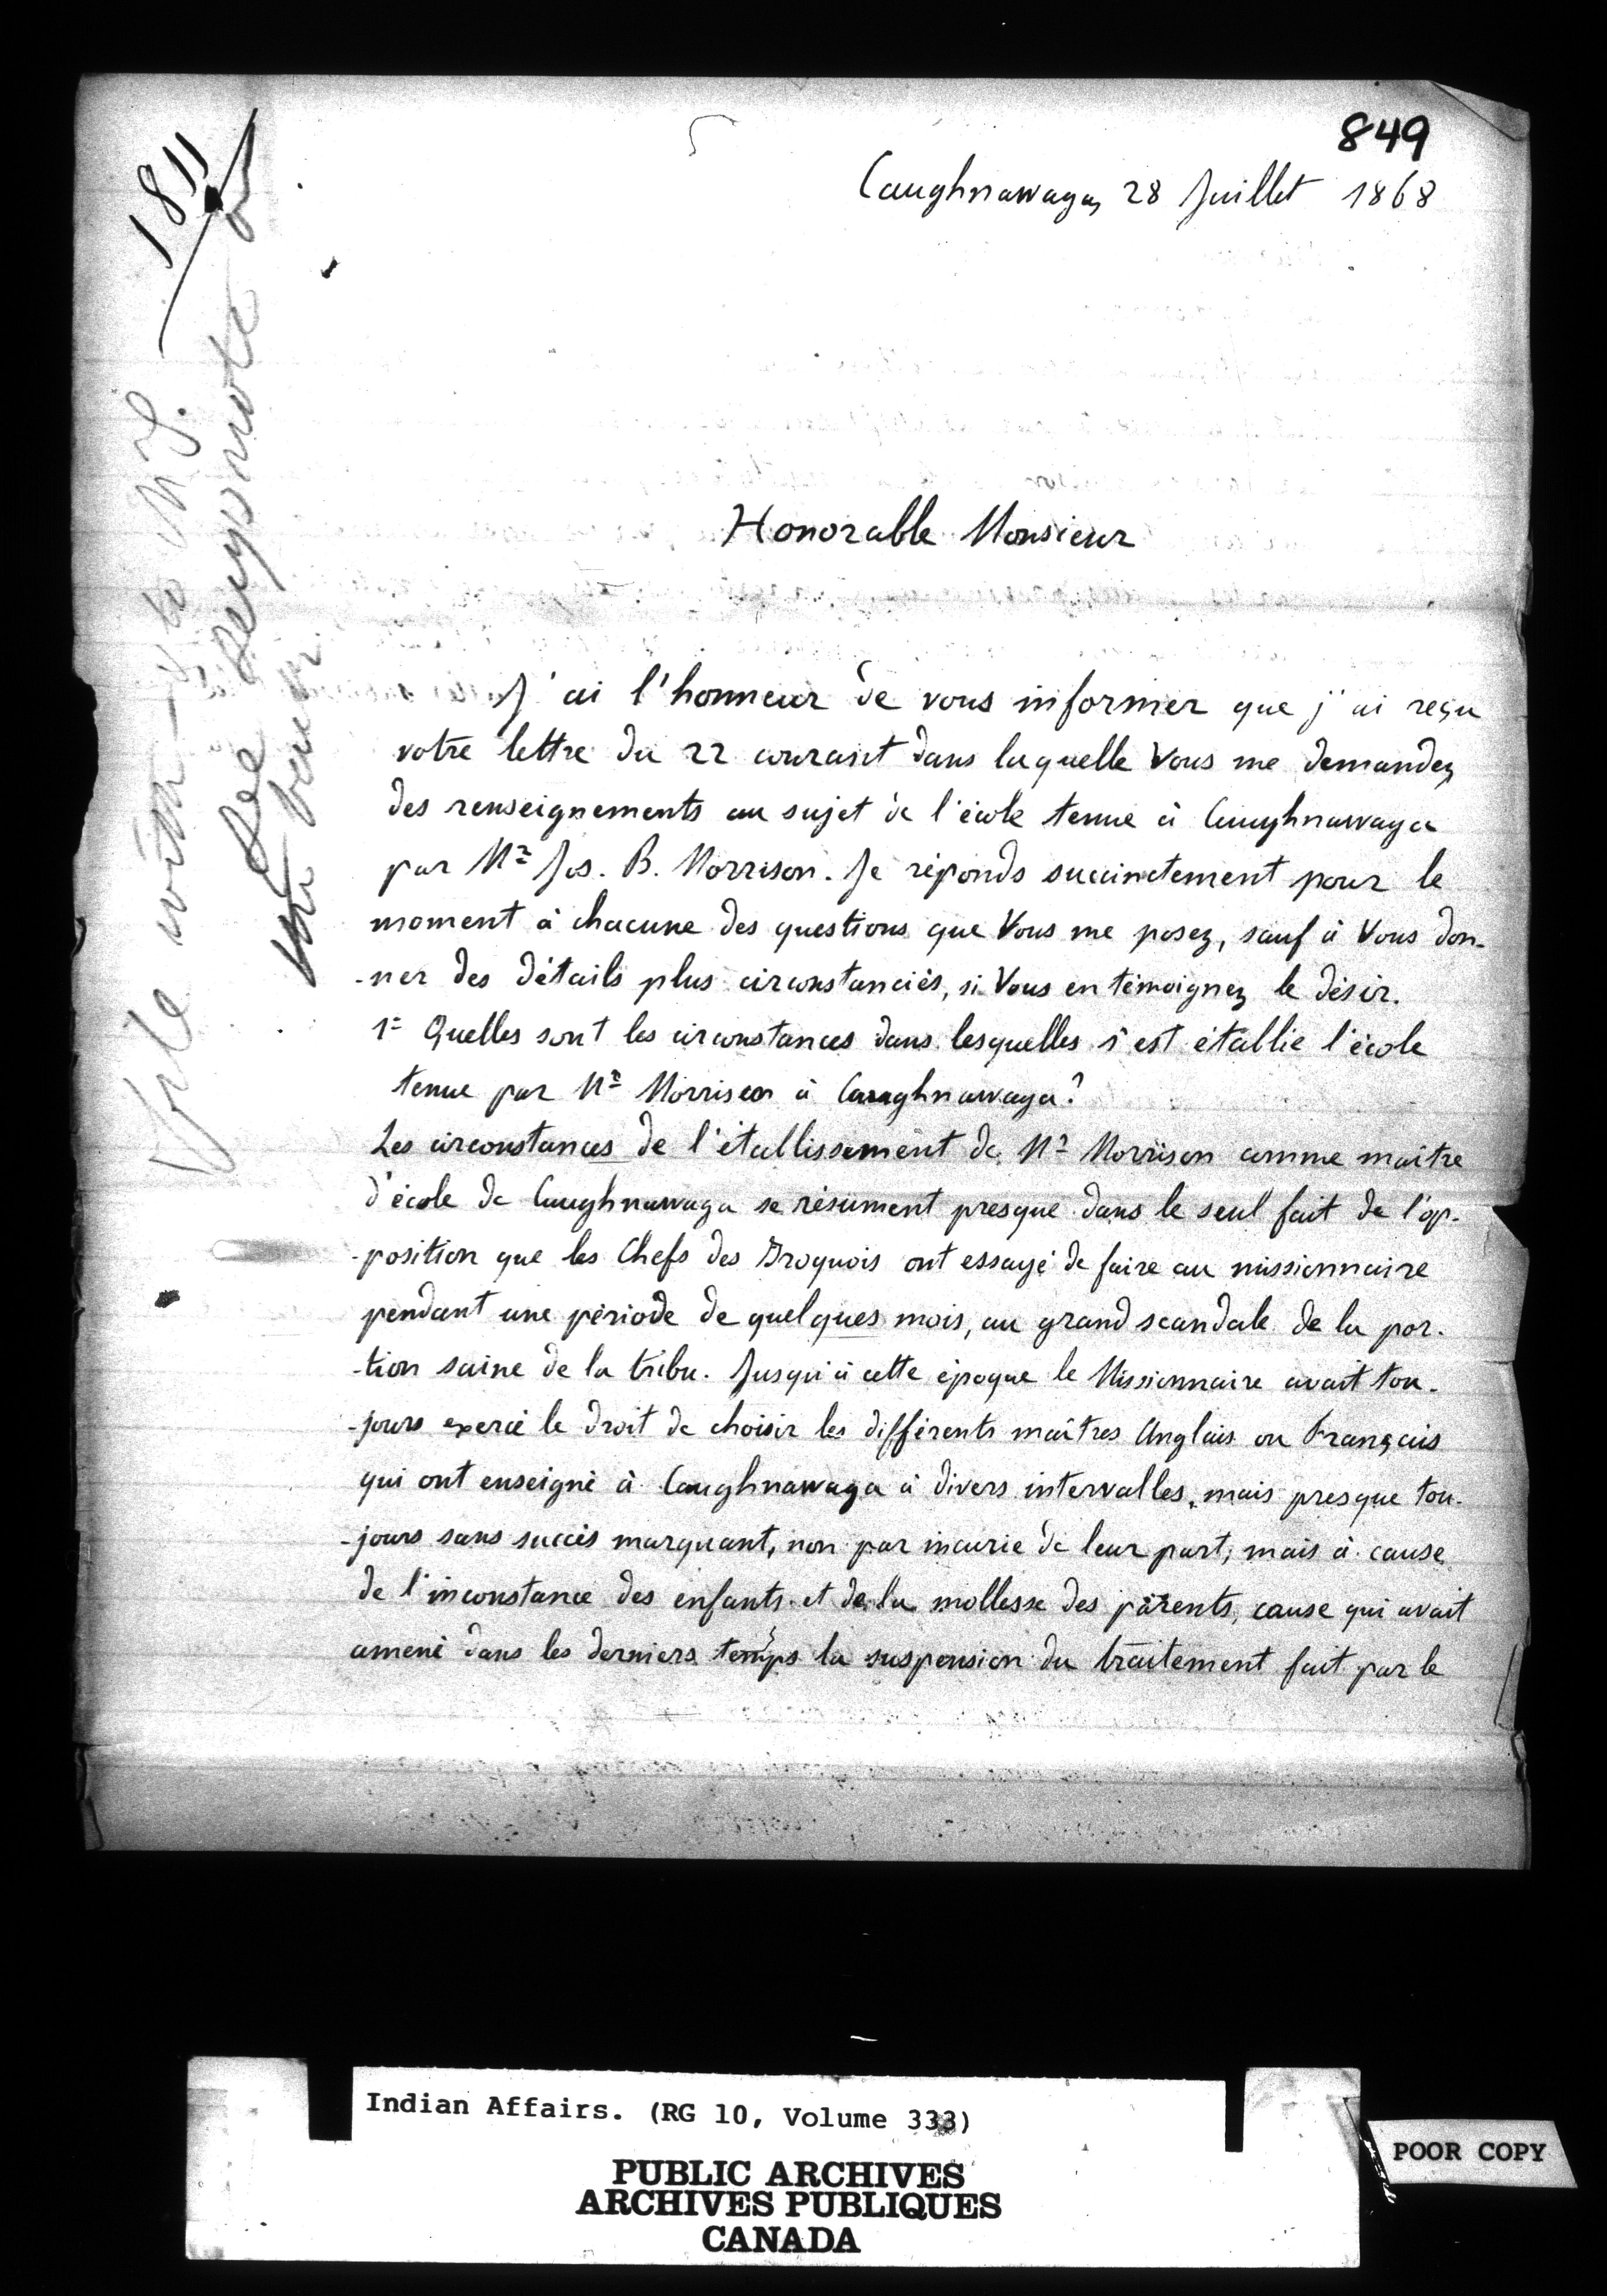 849
1811
Caughnawaga, 28 Juillet 1868
Honorable Monsieur
J'ai l'honneur de vous informer que j'ai reçu
votre lettre du 22 courant dans laquelle Vous me demandez
des renseignements au sujet de l'école tenue à Caughnawaga
par Mr Jos. B. Morrison. Je réponds succinctement pour le
moment à chacune des questions que Vous me posez, sauf à Vous don-
-ner des détails plus circonstanciés, si Vous en témoignez le désir.
1º Quelles sont les circonstances dans lesquelles s'est établie l'école
tenue par Mr Morrison à Caughnawaga?
Les circonstances de l'établissement de Mr Morrison comme maître
d'école de Caughnawaga se résument presque dans le seul fait de l'op-
-position que les Chefs des Iroquois ont essayé de faire au missionnaire
pendant une période de quelques mois, au grand scandale de la por-
-tion saine de la tribu. Jusqu'à cette époque le Missionnaire avait tou-
-jours exercé le droit de choisir les différents maîtres Anglais ou Français
qui ont enseigné à Caughnawaga à divers intervalles, mais presque tou-
-jours sans succès marquant, non par incurie de leur part, mais à cause
de l'inconstance des enfants et de la mollesse des parents, cause qui avait
amené dans les derniers temps la suspension du traitement fait par le
File with
See
Indian Affairs. (RG 10, Volume 333)
PUBLIC ARCHIVES
ARCHIVES PUBLIQUES
CANADA
POOR COPY